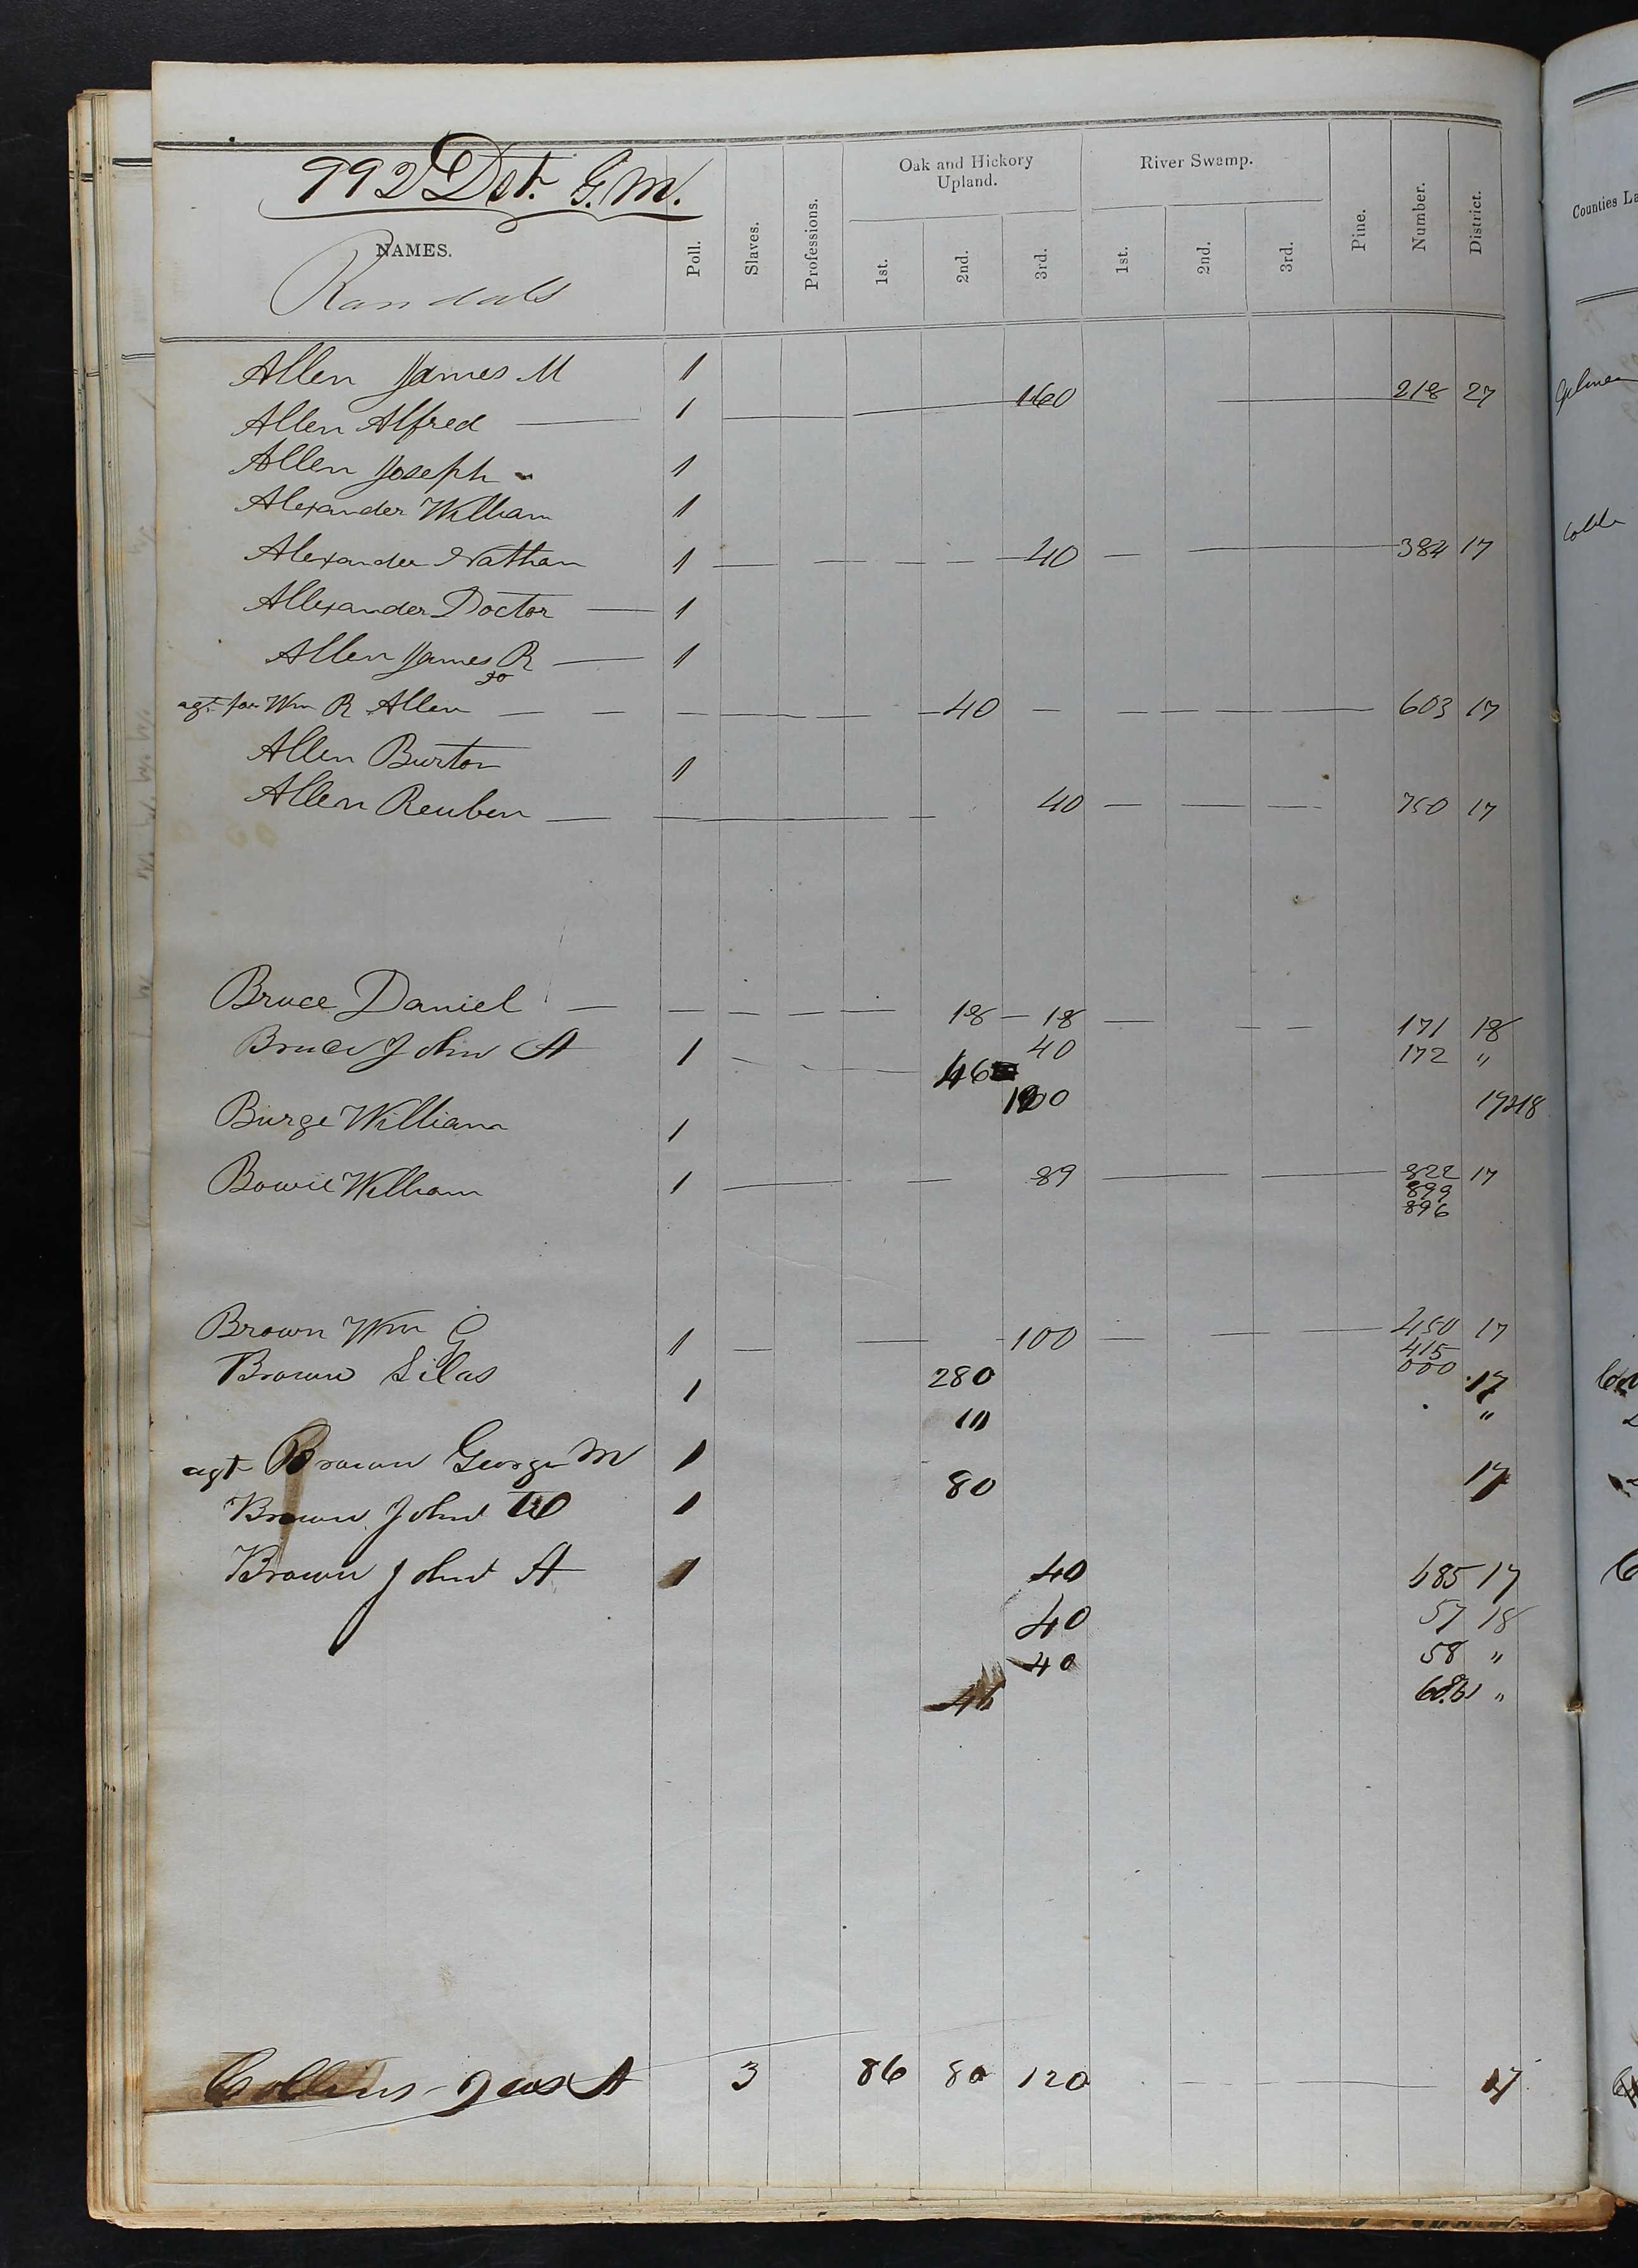 992 Dst. G. M.
NAMES.
Randals
Poll.
Slaves.
Professions.
Oak and Hickory
Upland.
1st.
2nd.
3rd.
River Swamp.
1st.
2nd.
3rd.
Pine.
Number.
District.
Counties La
Allen James M 1
160 218 27
Allen Alfred 1
Allen Joseph 1
Alexander William 1
Alexander Nathan 1 40 384 17
Allexander Doctor 1
Allen James R 1
agt for Wm R Allen 40 603 17
Allen Burton 1
Allen Reuben 40 750 17
Bruce Daniel 18 18 171 18
Bruce John A 1 46 40 172 "
Burge William 1
Bowie William 1 89 822 17
899
896
Brown Wm G 1 100 450 17
415
000
Brown Silas 1 280 17
10 "
agt Brown George M 1 80 17
Brown John W 1
Brown John A 1 40 685 17
40 57 18
40 58 "
"
Collins Jas A 3 86 80 120 17